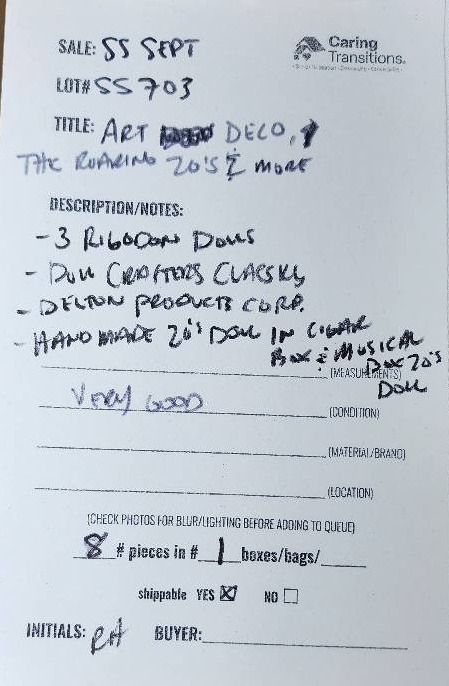 SALE: SS SEPT
Caring
Transitions.
LOT# SS 703
TITLE: ART DECO,
THE ROARING 20'S & MORE
DESCRIPTION/NOTES:
- 3 RIBBON DOLLS
- DOLL CRAFTERS CLASSICS
- DELTON PRODUCTS CORP.
- HANDMADE 20'S DOLL IN CIGAR
BOX & MUSICAL
BOX 20'S
(MEASUREMENTS)
DOLL
VERY GOOD
(CONDITION)
(MATERIAL/BRAND)
(LOCATION)
(CHECK PHOTOS FOR BLUR/LIGHTING BEFORE ADDING TO QUEUE)
8 # pieces in # 1 boxes/bags/
shippable YES ☒ NO ☐
INITIALS: RH BUYER: